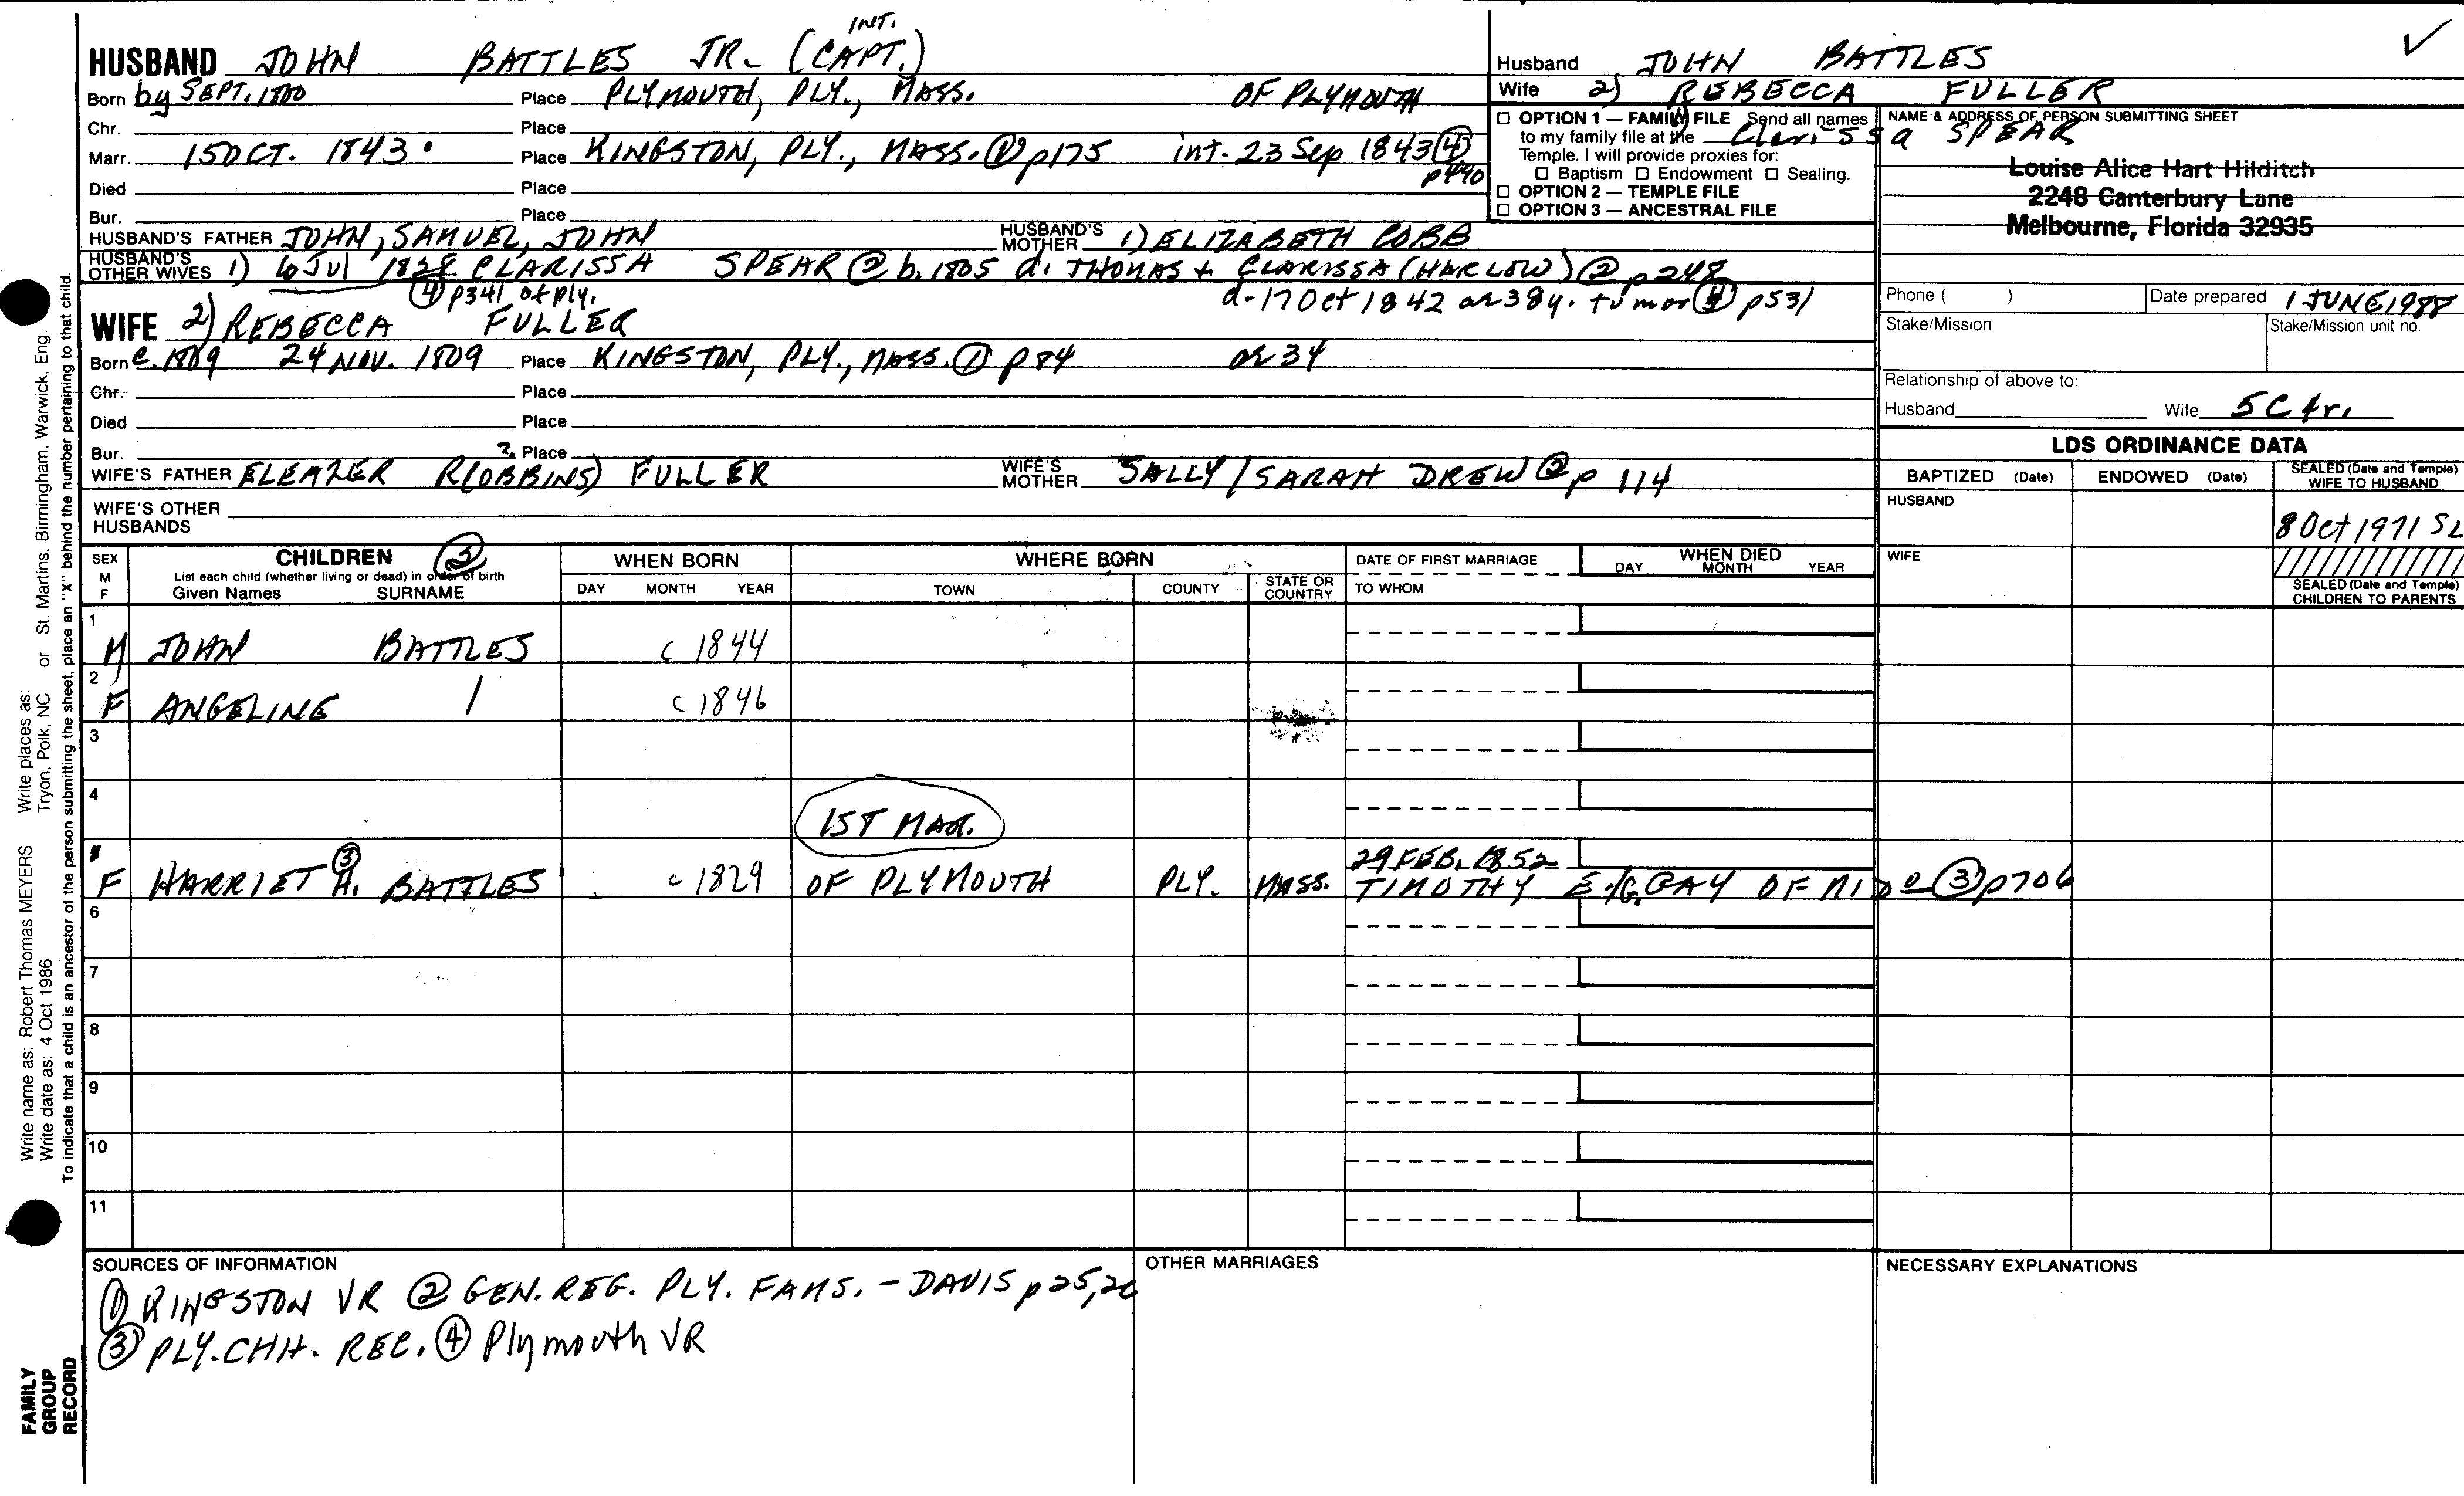 INT.
HUSBAND JOHN BATTLES JR. (CAPT.)
Born by SEPT. 1800 Place PLYMOUTH, PLY., MASS. OF PLYMOUTH
Chr. Place
Marr. 15 OCT. 1843 Place KINGSTON, PLY., MASS. ① p175 int. 23 Sep 1843 ④ p490
Died Place
Bur. Place
HUSBAND'S FATHER JOHN, SAMUEL, JOHN HUSBAND'S MOTHER 1) ELIZABETH COBB
HUSBAND'S OTHER WIVES 1) 6 Jul 1828 CLARISSA SPEAR ② b. 1805 d. THOMAS + CLARISSA (HARLOW) ② p248
④ p341 of Ply. d-17 Oct 1842 ae 38y. tumor ④ p531
WIFE 2) REBECCA FULLER
Born c. 1809 24 NOV. 1809 Place KINGSTON, PLY., MASS. ① p84 ae 34
Chr. Place
Died Place
Bur. 2. Place
WIFE'S FATHER ELEAZER R(OBBINS) FULLER WIFE'S MOTHER SALLY/SARAH DREW ② p 114
WIFE'S OTHER HUSBANDS
Husband JOHN BATTLES ✓
Wife 2) REBECCA FULLER
☐ OPTION 1 — FAMILY FILE Send all names
to my family file at the
Temple. I will provide proxies for:
☐ Baptism ☐ Endowment ☐ Sealing.
☐ OPTION 2 — TEMPLE FILE
☐ OPTION 3 — ANCESTRAL FILE
1) Clarissa SPEAR
NAME & ADDRESS OF PERSON SUBMITTING SHEET
Louise Alice Hart Hilditch
2248 Canterbury Lane
Melbourne, Florida 32935
Phone ( ) Date prepared 1 JUNE 1988
Stake/Mission Stake/Mission unit no.
Relationship of above to:
Husband Wife 5C 4r.
LDS ORDINANCE DATA
BAPTIZED (Date) ENDOWED (Date) SEALED (Date and Temple) WIFE TO HUSBAND
HUSBAND 8 Oct 1971 SL
WIFE
SEALED (Date and Temple) CHILDREN TO PARENTS
SEX M F CHILDREN ③ WHEN BORN WHERE BORN DATE OF FIRST MARRIAGE WHEN DIED
List each child (whether living or dead) in order of birth
Given Names SURNAME DAY MONTH YEAR TOWN COUNTY STATE OR COUNTRY TO WHOM DAY MONTH YEAR
1 M JOHN BATTLES c 1844
2 F ANGELINE / c 1846
3
4
1ST MAR.
F HARRIET ③ H. BATTLES c 1829 OF PLYMOUTH PLY. MASS. 29 FEB. 1852
TIMOTHY E./G. GAY OF MIDO ③ p706
6
7
8
9
10
11
SOURCES OF INFORMATION
① KINGSTON VR ② GEN. REG. PLY. FAMS. - DAVIS p25,26
③ PLY. CHH. REC. ④ Plymouth VR
OTHER MARRIAGES
NECESSARY EXPLANATIONS
Write name as: Robert Thomas MEYERS Write places as: St. Martins, Birmingham, Warwick, Eng.
Write date as: 4 Oct 1986 Tryon, Polk, NC or
To indicate that a child is an ancestor of the person submitting the sheet, place an "X" behind the number pertaining to that child.
FAMILY
GROUP
RECORD